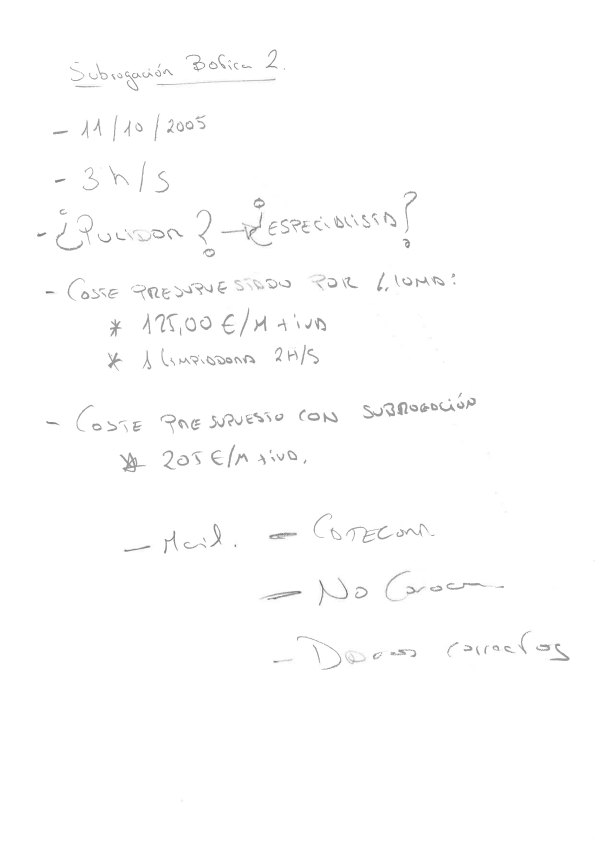 Subrogación Bofica 2.
- 11/10/2005
- 3 h/S
- ¿PULIDOR? → ¿ESPECIALISTA?
- COSTE PRESUPUESTADO POR
* 125,00 €/M + IVA
* 1 LIMPIADORA 2H/S
- COSTE PRESUPUESTO CON SUBROGACIÓN
* 205 €/M + IVA.
- Mail. - COTECONA.
- No
- correctos